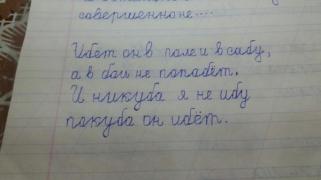 совершенно не....
Идёт он в поле и в саду,
а в дом не попадёт.
И никуда я не иду
покуда он идёт.